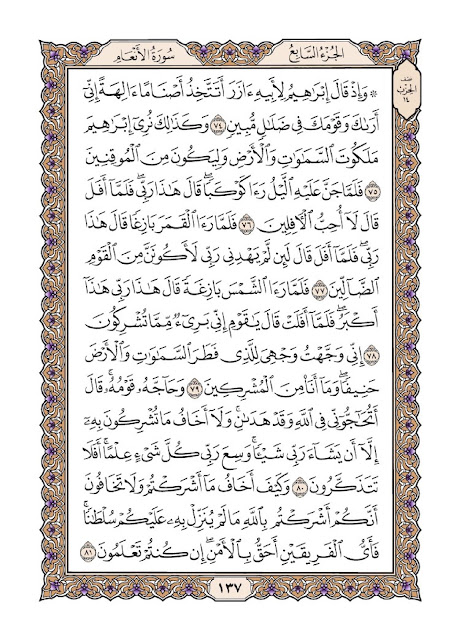 سُورَةُ الأَنْعَام
الجُزْءُ السَّابِع
نصف
الحزب
١٤
۞ وَإِذْ قَالَ إِبْرَٰهِيمُ لِأَبِيهِ ءَازَرَ أَتَتَّخِذُ أَصْنَامًا ءَالِهَةً إِنِّيٓ
أَرَىٰكَ وَقَوْمَكَ فِي ضَلَٰلٍ مُّبِينٍ ٧٤ وَكَذَٰلِكَ نُرِيٓ إِبْرَٰهِيمَ
مَلَكُوتَ ٱلسَّمَٰوَٰتِ وَٱلْأَرْضِ وَلِيَكُونَ مِنَ ٱلْمُوقِنِينَ
٧٥ فَلَمَّا جَنَّ عَلَيْهِ ٱلَّيْلُ رَءَا كَوْكَبًا قَالَ هَٰذَا رَبِّي فَلَمَّآ أَفَلَ
قَالَ لَآ أُحِبُّ ٱلْأٓفِلِينَ ٧٦ فَلَمَّا رَءَا ٱلْقَمَرَ بَازِغًا قَالَ هَٰذَا
رَبِّي فَلَمَّآ أَفَلَ قَالَ لَئِن لَّمْ يَهْدِنِي رَبِّي لَأَكُونَنَّ مِنَ ٱلْقَوْمِ
ٱلضَّآلِّينَ ٧٧ فَلَمَّا رَءَا ٱلشَّمْسَ بَازِغَةً قَالَ هَٰذَا رَبِّي هَٰذَآ
أَكْبَرُ فَلَمَّآ أَفَلَتْ قَالَ يَٰقَوْمِ إِنِّي بَرِيٓءٌ مِّمَّا تُشْرِكُونَ
٧٨ إِنِّي وَجَّهْتُ وَجْهِيَ لِلَّذِي فَطَرَ ٱلسَّمَٰوَٰتِ وَٱلْأَرْضَ
حَنِيفًا وَمَآ أَنَا۠ مِنَ ٱلْمُشْرِكِينَ ٧٩ وَحَآجَّهُۥ قَوْمُهُۥ قَالَ
أَتُحَٰٓجُّوٓنِّي فِي ٱللَّهِ وَقَدْ هَدَىٰنِ وَلَآ أَخَافُ مَا تُشْرِكُونَ بِهِۦٓ
إِلَّآ أَن يَشَآءَ رَبِّي شَيْـًٔا وَسِعَ رَبِّي كُلَّ شَيْءٍ عِلْمًا أَفَلَا
تَتَذَكَّرُونَ ٨٠ وَكَيْفَ أَخَافُ مَآ أَشْرَكْتُمْ وَلَا تَخَافُونَ
أَنَّكُمْ أَشْرَكْتُم بِٱللَّهِ مَا لَمْ يُنَزِّلْ بِهِۦ عَلَيْكُمْ سُلْطَٰنًا
فَأَيُّ ٱلْفَرِيقَيْنِ أَحَقُّ بِٱلْأَمْنِ إِن كُنتُمْ تَعْلَمُونَ ٨١
١٣٧